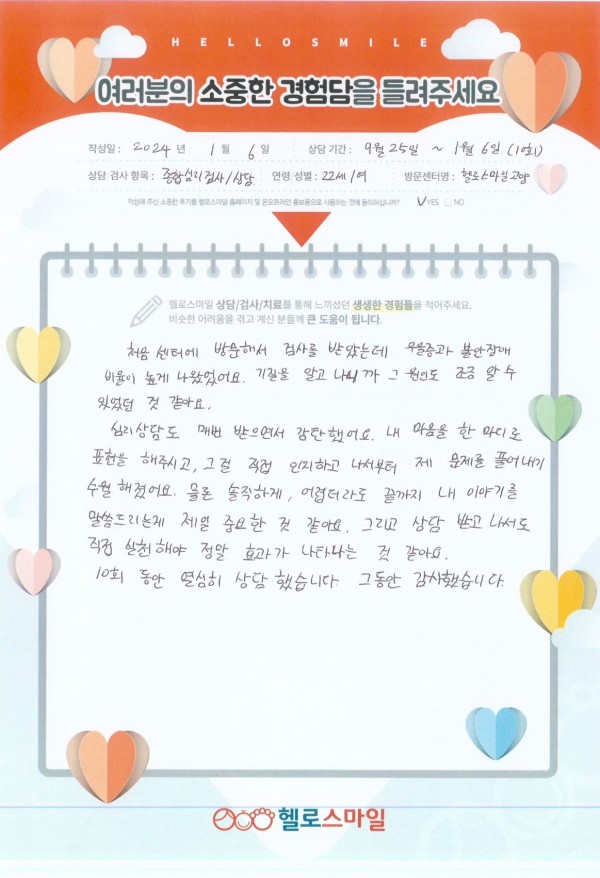 HELLOSMILE
여러분의 소중한 경험담을 들려주세요
작성일 : 2024 년 1 월 6 일 상담 기간 : 9월 25일 ~ 1월 6일 (10회)
상담 검사 항목 : 종합심리검사/상담 연령/성별 : 22세/여 방문센터명 : 헬로스마일고양
작성해 주신 소중한 후기를 헬로스마일 홈페이지 및 온오프라인 홍보용으로 사용하는 것에 동의하십니까? ✓YES □ NO
헬로스마일 상담/검사/치료를 통해 느끼셨던 생생한 경험들을 적어주세요.
비슷한 어려움을 겪고 계신 분들께 큰 도움이 됩니다.
처음 센터에 방문해서 검사를 받았는데 우울증과 불안장애
비율이 높게 나왔었어요. 기질을 알고 나니까 그 원인도 조금 알 수
있었던 것 같아요.
심리상담도 매번 받으면서 감탄했어요. 내 마음을 한 마디로
표현을 해주시고, 그걸 직접 인지하고 나서부터 제 문제를 풀어내기
수월해졌어요. 물론 솔직하게, 어렵더라도 끝까지 내 이야기를
말씀드리는게 제일 중요한 것 같아요. 그리고 상담 받고 나서도
직접 실천해야 정말 효과가 나타나는 것 같아요.
10회 동안 열심히 상담 했습니다. 그동안 감사했습니다.
헬로스마일